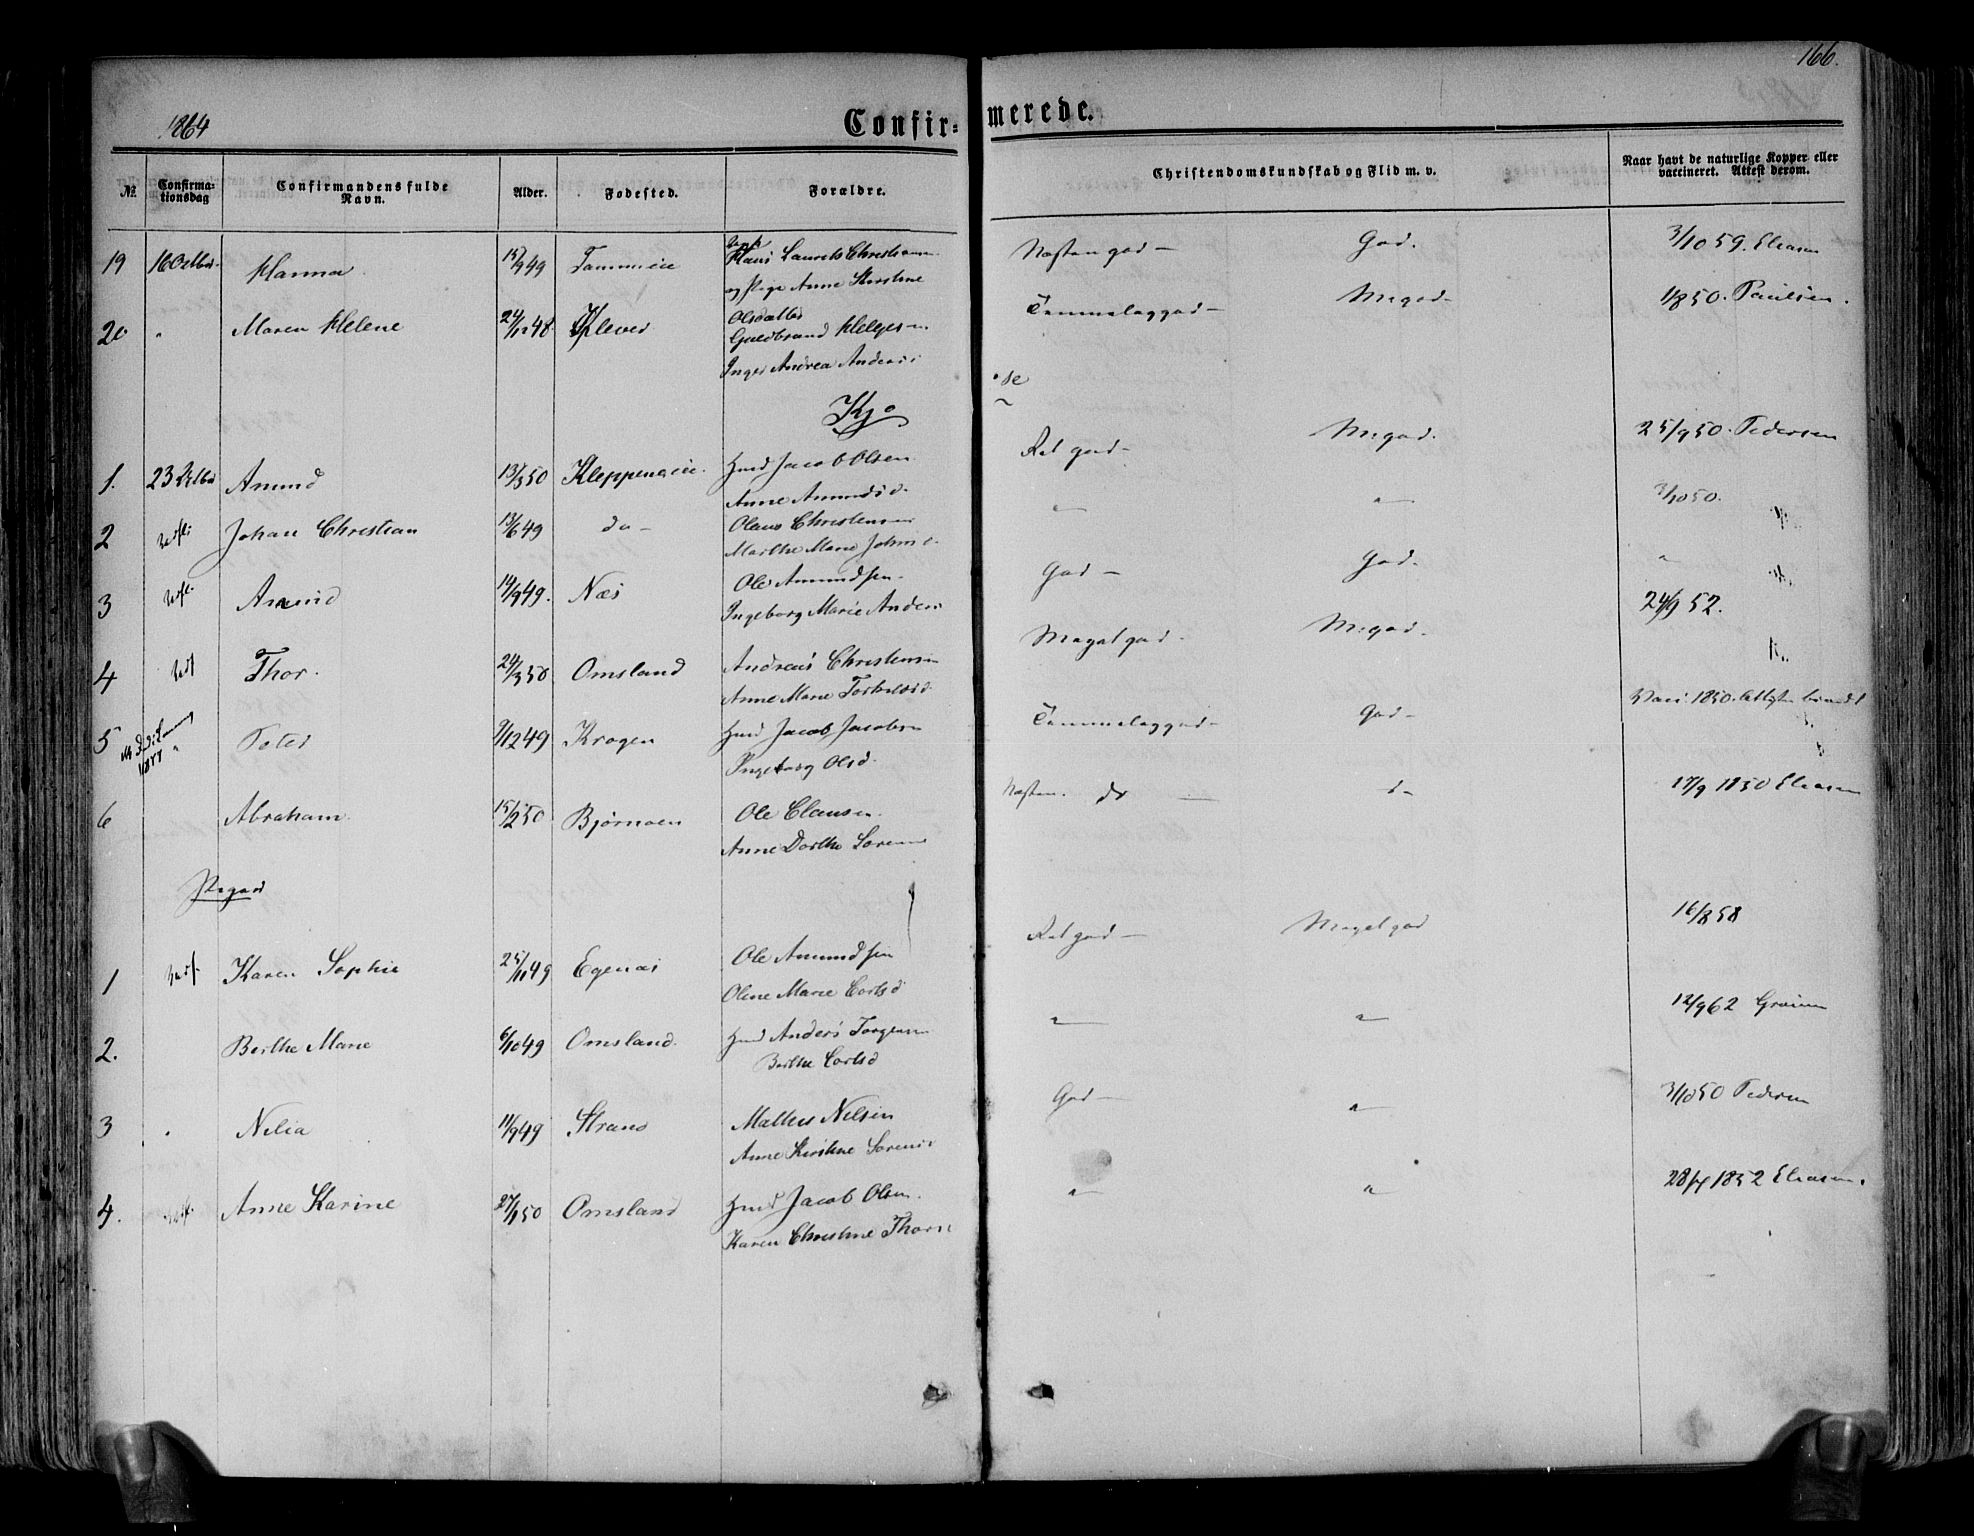 166.
1864
Confir= merede.
№
Confirma-
tionsdag
Confirmandens fulde
Navn.
Alder.
Fødested.
Forældre.
Christendomskundskab og Flid m. v.
Naar havt de naturlige Kopper eller
vaccineret. Attest derom.
19 16 Octbr. Hanna 15/9 49 Hans Laurits Christians Næsten god — God. 3/10 59. Eliasen
og Pige Anne Kirstine
20 " Maren Helene 24/12 48 Klever Olsdatter Temmelig god — M. god — 1/8 50. Paulsen.
Guldbrand Helgesen
Inger Andrea Anders
Kjo
se
1. 23 Octbr Amund 13/5 50 Kleppeneie. Hmd Jacob Olsen Ret god — M. god. 25/9 50. Pedersen
Anne Amundsd.
2 Johan Christian 13/6 49 do — Olaus Christensen " " 3/10 50.
Marthe Marie Johnsd
3 Amund 14/9 49. Næs Ole Amundsen. God — God. "
Ingeborg Marie Anders
4 Thor. 24/3 50 Omsland Andreas Christensen Meget god. M. god. 24/9 52.
Anne Marie Torkelsd.
5 " Peter 9/12 49 Krogen Hmd Jacob Jacobsen Temmelig god — God — Vacc. 1850.
1877
Ingeborg Olsd.
6 Abraham. 15/2 50 Bjørnøen Ole Clausen. Næsten do — do 17/9 1850 Eliasen
Anne Dorthe Sørens
Piger
1 Karen Sophie 25/11 49 Egenæs Ole Amundsen Ret god — Meget god 16/8 58
Oline Marie Carlsd
2. Berthe Marie 6/10 49 Omsland. Hmd Anders Torgersen " " 12/9 62
Berthe Carlsd
3 " Nilia 11/9 49 Strand Mathis Nilsen God — " 3/10 50 Pedersen
Anne Kirstine Sørensd
4. Anne Karine 27/1 50 Omsland Hmd Jacob Olsen. " " 28/4 1852 Eliasen.
Karen Christine Thors